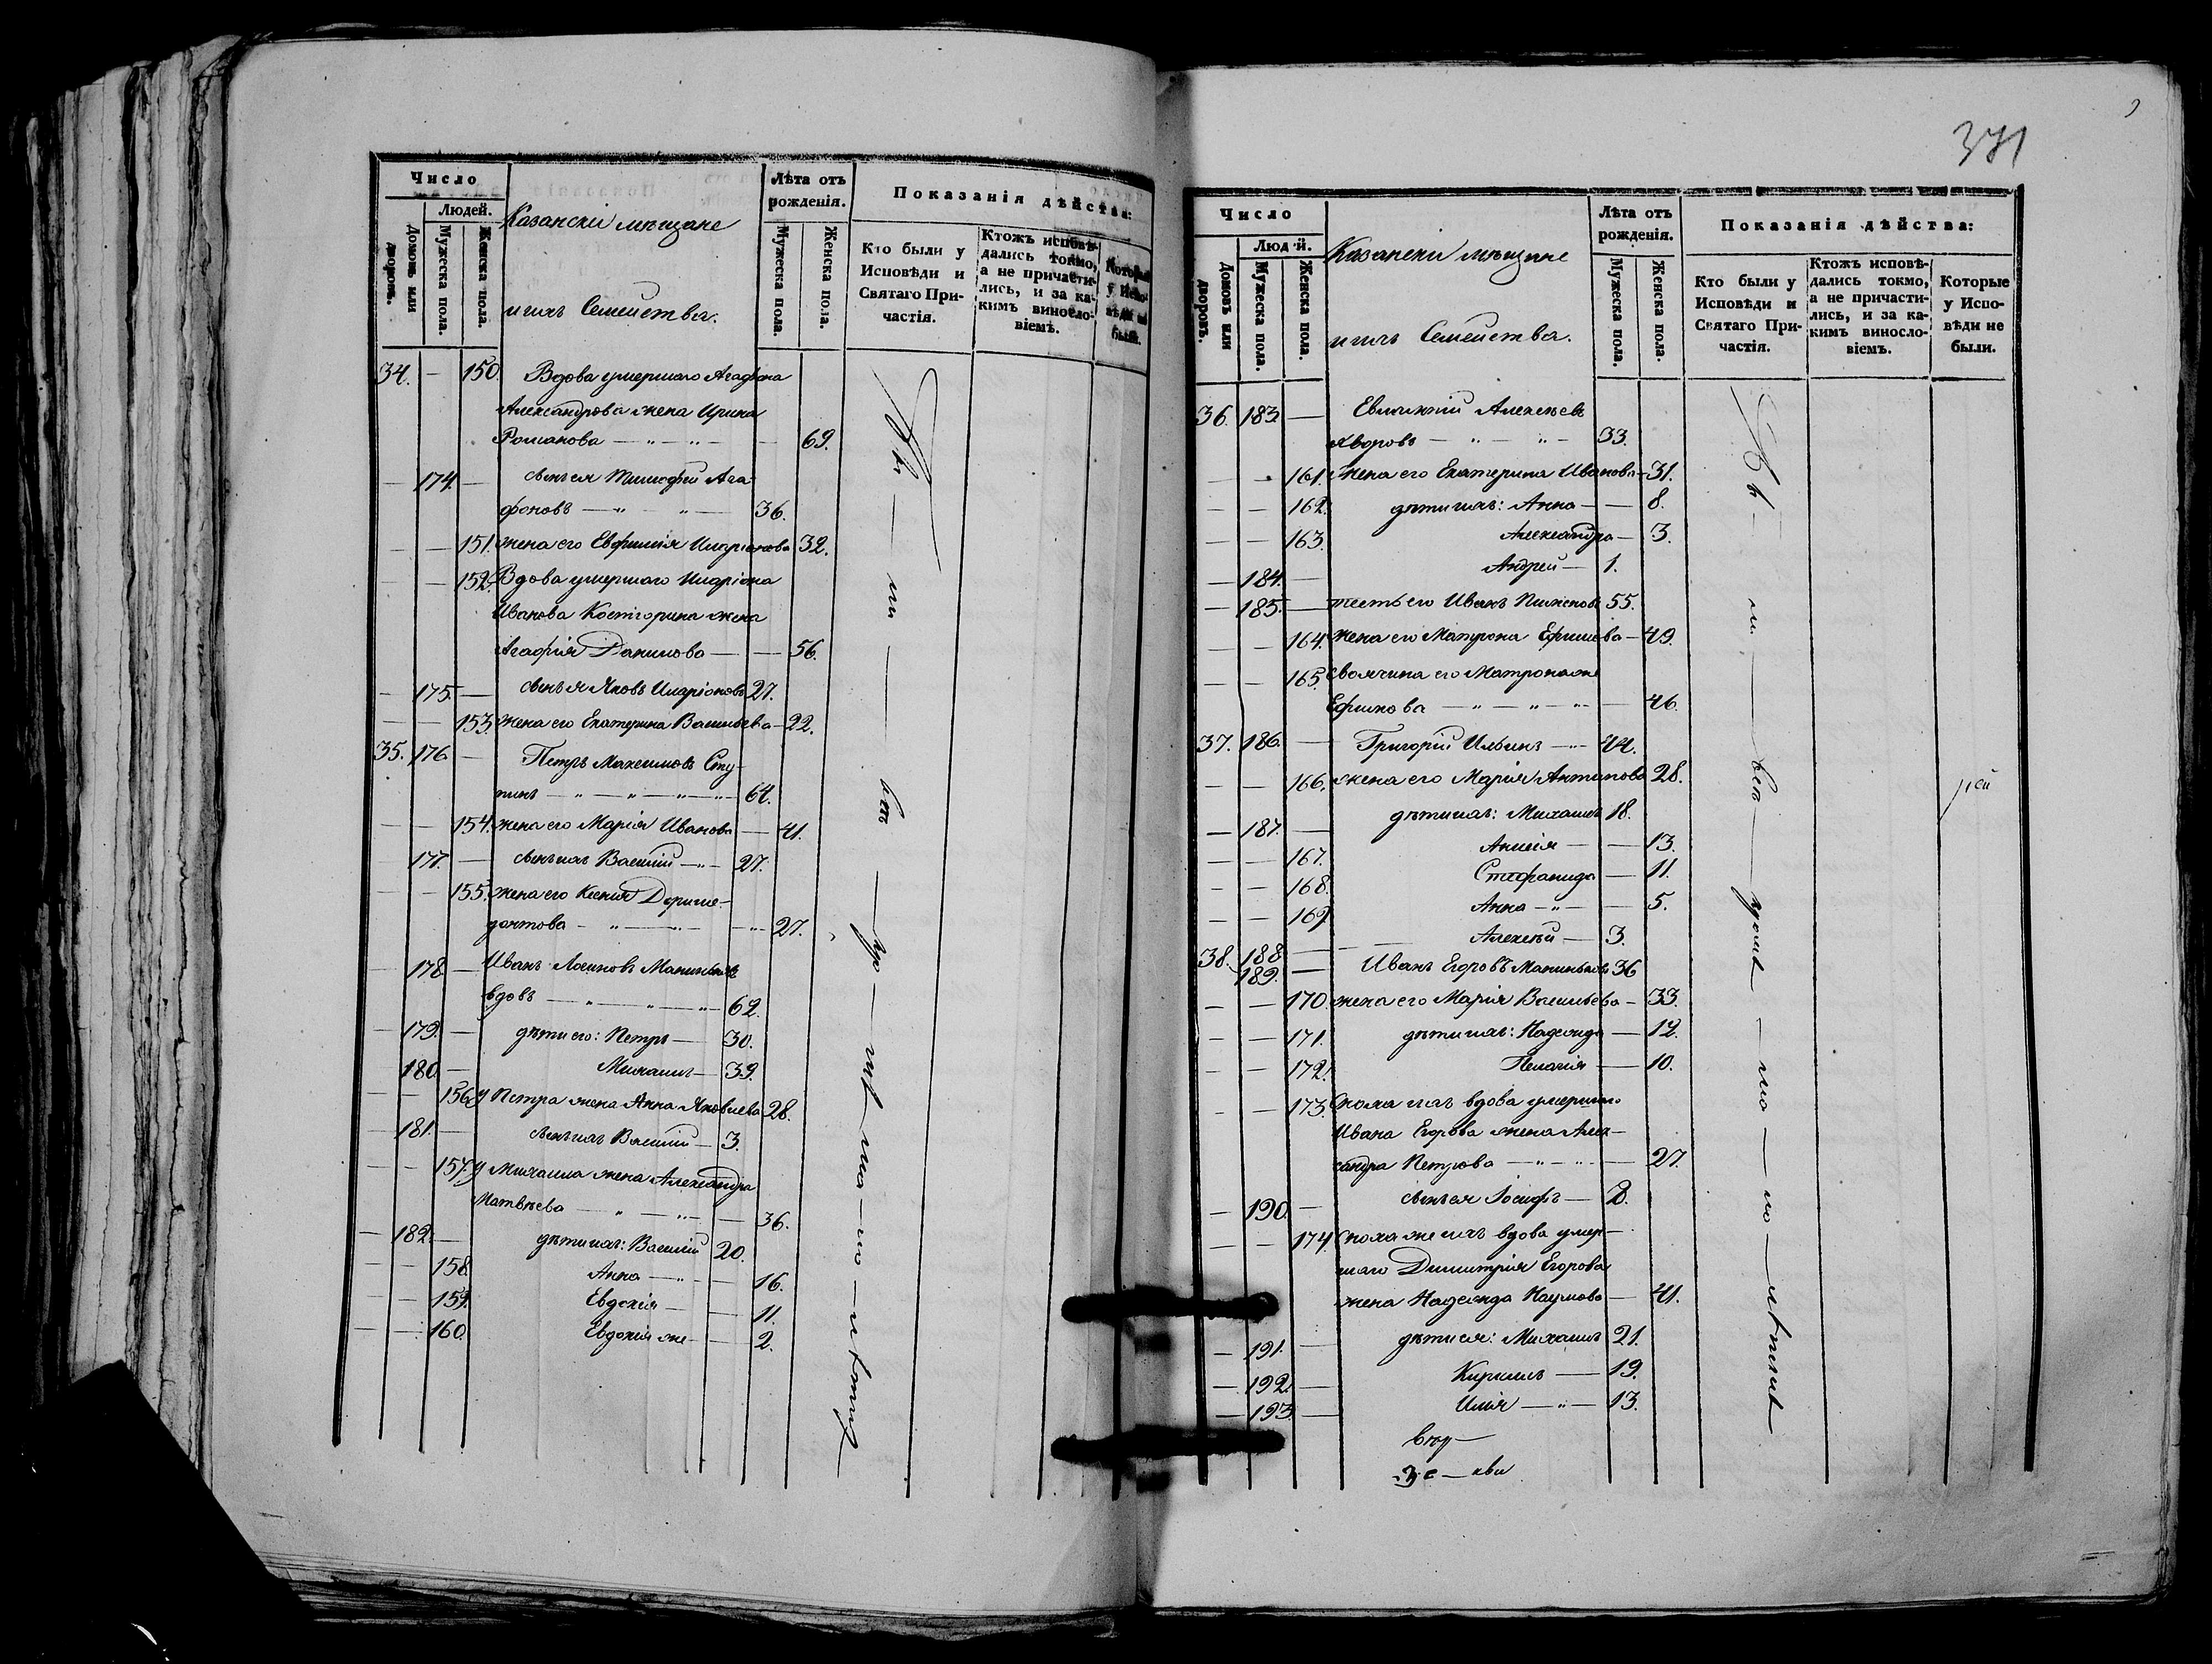 Число
Людей.
Домовъ или дворовъ.
Мужеска пола.
Женска пола.
Казанскіи мѣщане
и ихъ Семейства.
Лѣта отъ рожденія.
Мужеска пола.
Женска пола.
Показанія дѣйства:
Кто были у Исповѣди и Святаго Причастія.
Ктожъ исповѣдались токмо, а не причастились, и за какимъ винословіемъ.
Которые у Исповѣди не были.
34. — 150. Вдова умершаго Агафона
Александрова жена Ирина
Романова — 69.
— 174. — сынъ ея Тимофей Ага-
фоновъ — 36.
— — 151. жена его Евфимія Иларіонова 32.
— — 152. Вдова умершаго Иларіона
Иванова жена
Агафія Данилова — 56.
— 175. — сынъ ея Яковъ Иларіоновъ 27.
— — 153. жена его Екатерина Васильева — 22.
35. 176. — Петръ Максимовъ Сту-
пинъ — 64.
— — 154. жена его Марія Иванова — 41.
— 177. — сынъ ихъ Василій — 27.
— — 155. жена его Ксенія Дориме-
донтова — 27.
— 178. — Иванъ
вдовъ — 62.
— 179. — дѣти его: Петръ — 30.
— 180. — Михаилъ — 39.
— — 156. У Петра жена Анна Яковлева 28.
— 181. — сынъ ихъ Василій — 3.
— — 157. У Михаила жена Александра
Матвѣева — 36.
— 182. — дѣти ихъ: Василій 20.
— — 158. Анна — 16.
— — 159. Евдокія — 11.
— — 160. Евдокія же — 2.
371
Число
Людей.
Домовъ или дворовъ.
Мужеска пола.
Женска пола.
Казанскіи мѣщане
и ихъ Семейства.
Лѣта отъ рожденія.
Мужеска пола.
Женска пола.
Показанія дѣйства:
Кто были у Исповѣди и Святаго Причастія.
Ктожъ исповѣдались токмо, а не причастились, и за какимъ винословіемъ.
Которые у Исповѣди не были.
36. 183. — Алексѣевъ
Яворовъ — 33.
— — 161. жена его Екатерина Иванова — 31.
— — 162. дѣти ихъ: Анна — 8.
— — 163. Александра — 3.
— 184. — Андрей — 1.
— 185. — тесть его Иванъ Пименовъ 55.
— — 164. жена его Матрона Ефимова — 49.
— — 165. своячина его Матрона же
Ефимова — 46.
37. 186. — Григорій Ильинъ — 44.
— — 166. жена его Марія Антипова 28.
— 187. — дѣти ихъ: Михаилъ 18.
— — 167. Анисія — 13.
— — 168. Стефанида — 11.
— — 169. Анна — 5.
188. — Алексѣй — 3.
38. 189. — Иванъ Егоровъ 36
— — 170. жена его Марія Васильева — 33.
— — 171. дѣти ихъ: Надежда — 12.
— — 172. Пелагія — 10.
— — 173. Сноха ихъ вдова умершаго
Ивана Егорова жена Алек-
сандра Петрова — 27.
— 190. — сынъ ея Іосифъ — 2.
— — 174. Сноха же ихъ вдова умер-
шаго Димитрія Егорова
жена Надежда Наумова — 41.
— 191. — дѣти ея: Михаилъ 21.
— 192. — Кириллъ — 19.
— 193. — Илія — 13.